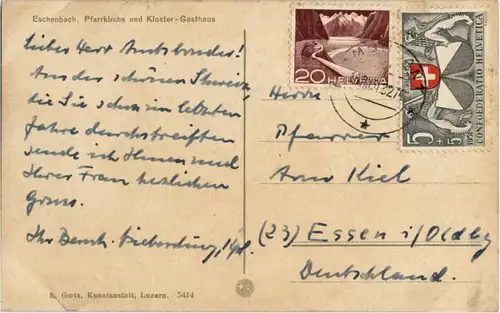 Eschenbach, Pfarrkirche und Kloster-Gasthaus
Lieber Herr Amtsbruder!
Aus der schönen Schweiz,
die Sie schon im letzten
Jahre durchstreiften
sende ich Ihnen und
Ihrer Frau herzlichen
Gruss.
Ihr Bernh.
E. Goetz, Kunstanstalt, Luzern. 5414
20 HELVETIA
5+5
CONFOEDERATIO HELVETICA
Herrn
Pfarrer
Arno Kiel
(23) Essen i/Oldbg
Deutschland.